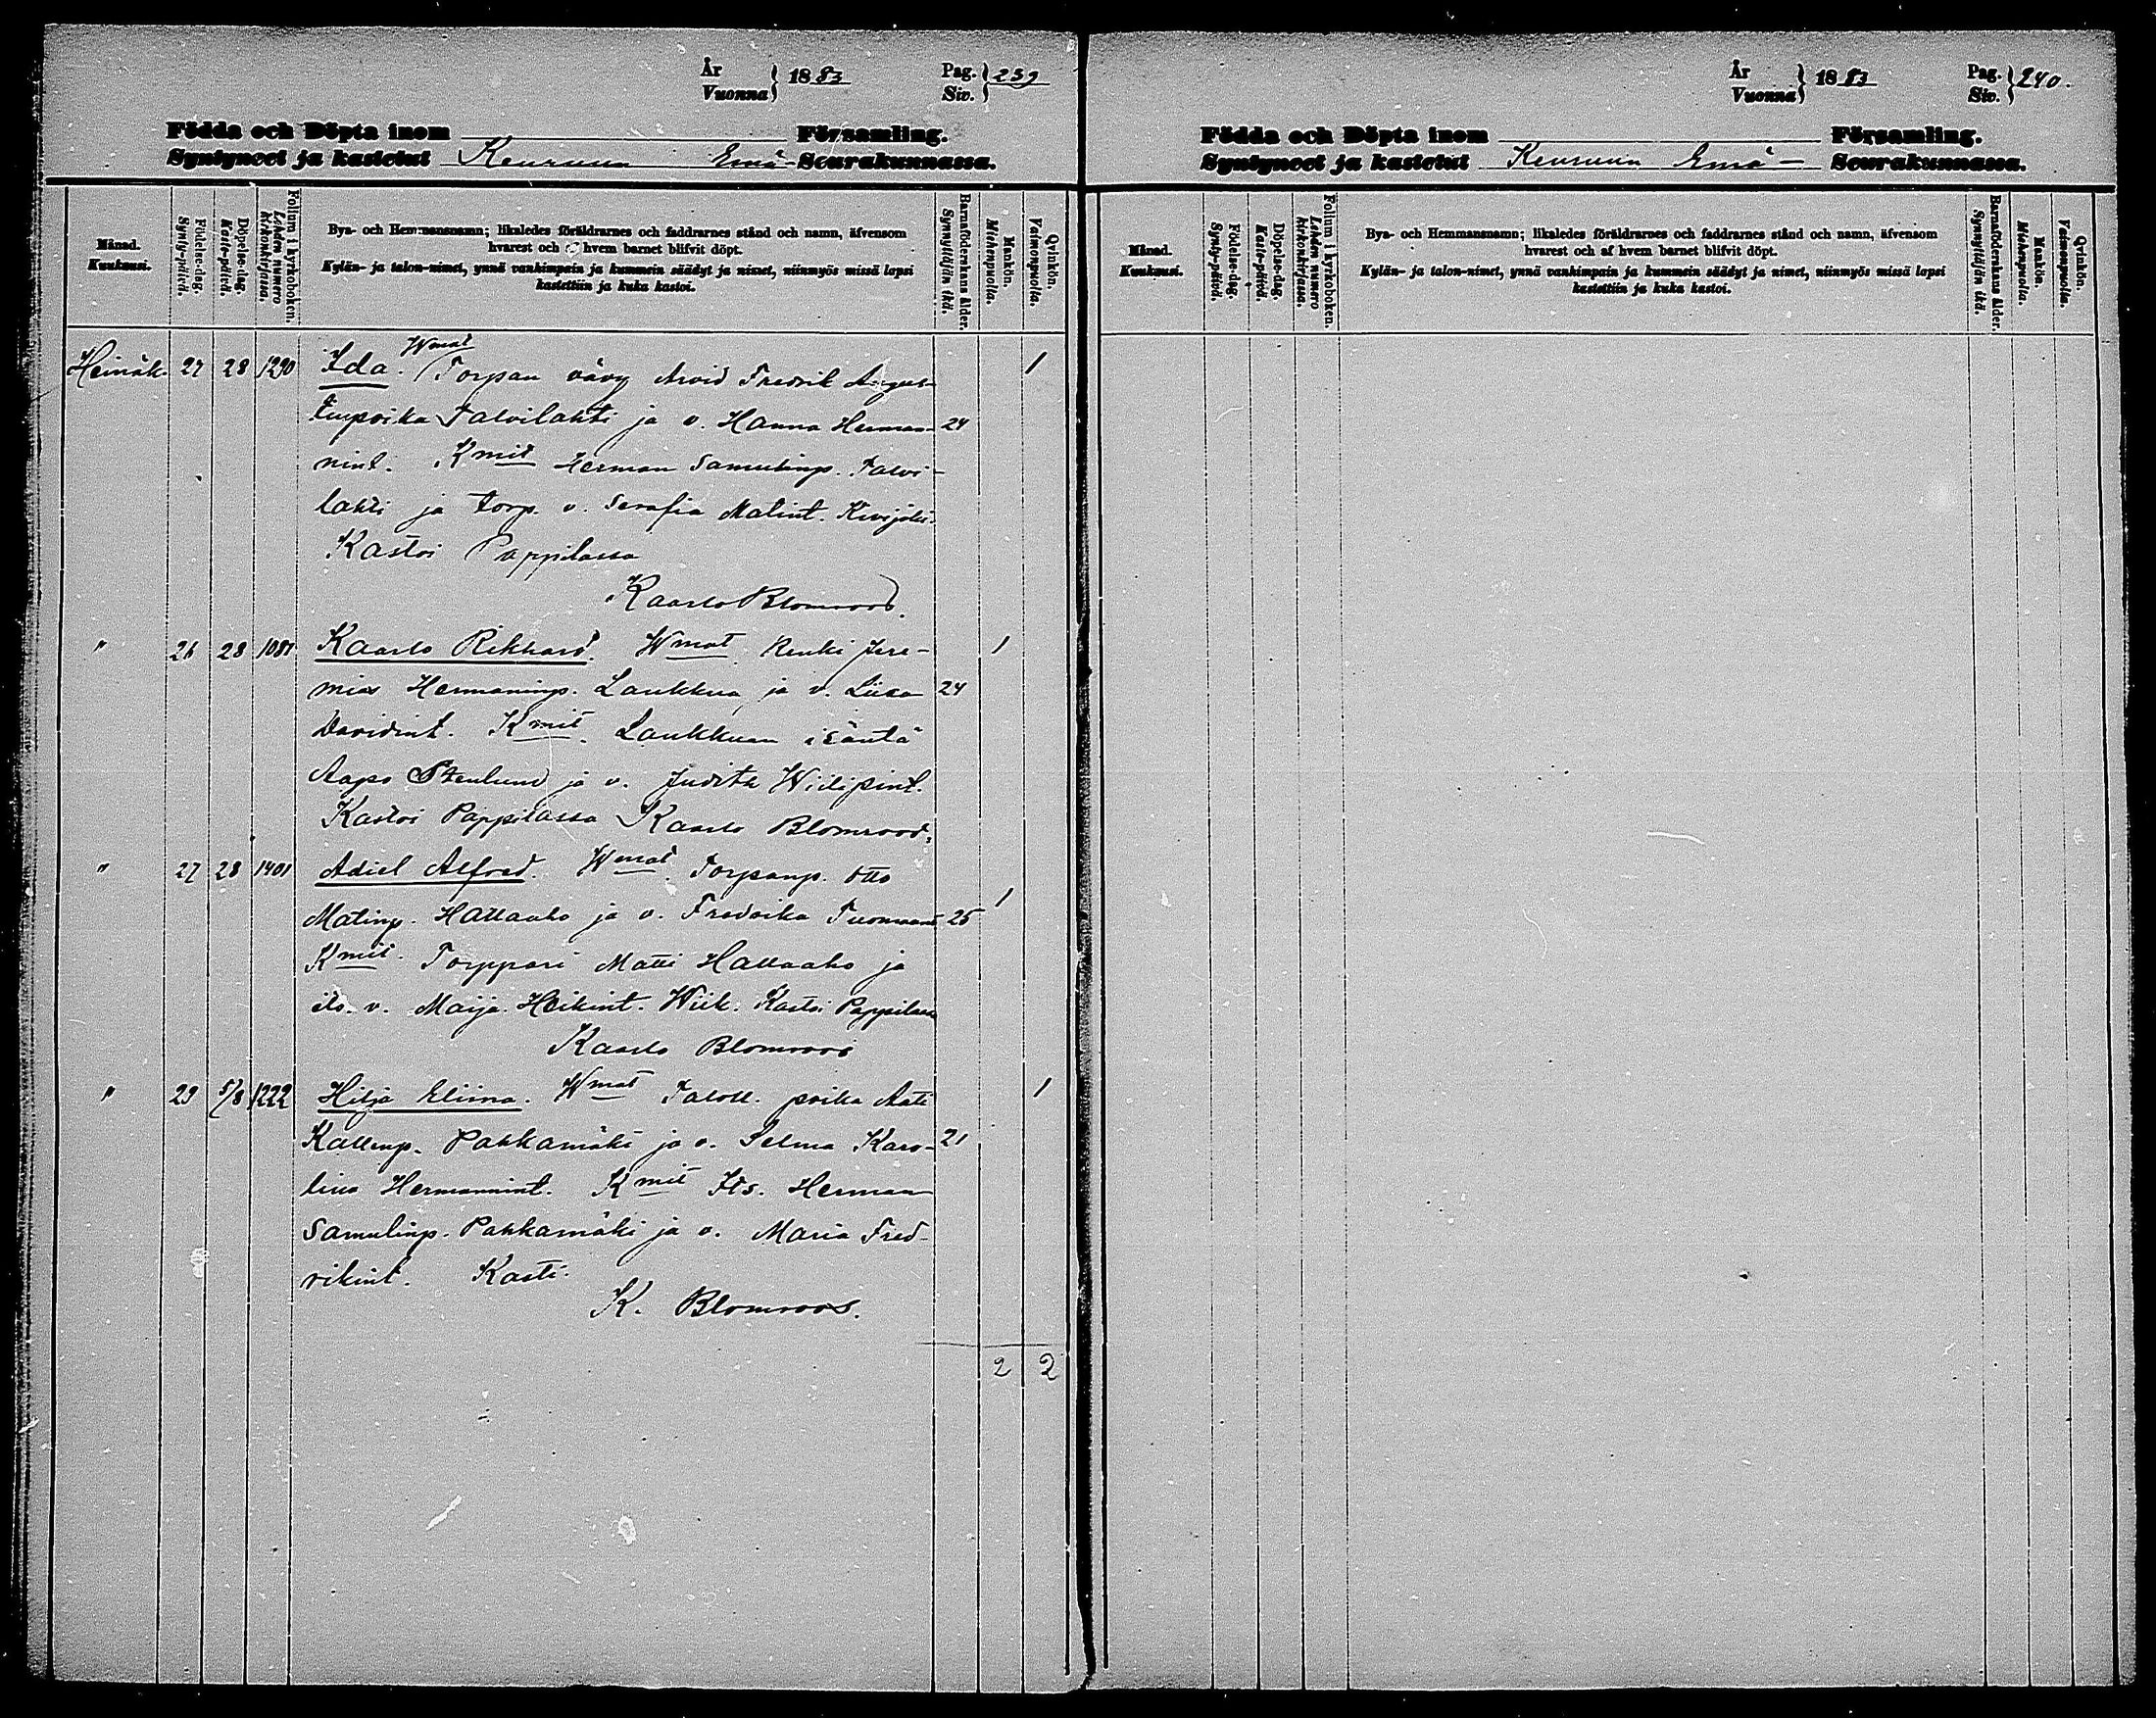 År
Vuonna
1883
Pag.
Siv.
239
Födda och Döpta inom Församling.
Syntyneet ja kastetut Keuruun Emä- Seurakunnassa.
Månad.
Kuukausi.
Födelse-dag.
Synty-päivä.
Döpelse-dag.
Kaste-päivä.
Folium i kyrkoboken.
Lehden numero kirkonkirjassa.
Bya- och Hemmansnamn; likaledes föräldrarnes och faddrarnes stånd och namn, äfvensom
hvarest och hvem barnet blifvit döpt.
Kylän- ja talon-nimet, ynnä vanhimpain ja kummein säädyt ja nimet, niinmyös missä lapsi
kastettiin ja kuka kastoi.
Barnaföderskans ålder.
Synnyttäjän ikä.
Mankön.
Miehenpuolia.
Qvinkön.
Vaimonpuolia.
Wmat
Heinäk. 27 28 1290 Ida. Torpan vävy Arvid Fredrik Augus- 1
tinpoika Talvilahti ja v. Hanna Herman- 24
nint. Kmit Herman Samulinp. Talvi-
lahti ja torp. v. Serafia Matint.
Kastoi Pappilassa
Kaarlo Blomroos.
" 26 28 Kaarlo Rikhard. Wmat. Renki Jere- 1
mias Hermaninp. Laukkua ja v. Liisa 24
Davidint. Kmit. Laukkuan isäntä
Aapo Stenlund ja v. Judith Wilipint.
Kastoi Pappilassa Kaarlo Blomroos.
" 27 28 1401 Adiel Alfred. Wmat. Torpanp. Otto 1
Matinp. Hallaaho ja v. Fredrika Tuomaant 25
Kmit. Torppari Matti Hallaaho ja
its. v. Maija Heikint. Wiik. Kastoi Pappilassa
Kaarlo Blomroos
" 29 5/8 1222 Hilja Eliina. Wmat Taloll. poika Aati 1
Kallenp. Pahkamäki ja v. Selma Karo- 21
lina Hermannint. Kmit Its. Herman
Samulinp. Pahkamäki ja v. Maria Fred-
rikint. Kasti.
K. Blomroos.
2 2
År
Vuonna
1883
Pag.
Siv.
240.
Födda och Döpta inom Församling.
Syntyneet ja kastetut Keuruun Emä- Seurakunnassa.
Månad.
Kuukausi.
Födelse-dag.
Synty-päivä.
Döpelse-dag.
Kaste-päivä.
Folium i kyrkoboken.
Lehden numero kirkonkirjassa.
Bya- och Hemmansnamn; likaledes föräldrarnes och faddrarnes stånd och namn, äfvensom
hvarest och af hvem barnet blifvit döpt.
Kylän- ja talon-nimet, ynnä vanhimpain ja kummein säädyt ja nimet, niinmyös missä lapsi
kastettiin ja kuka kastoi.
Barnaföderskans ålder.
Synnyttäjän ikä.
Mankön.
Miehenpuolia.
Qvinkön.
Vaimonpuolia.